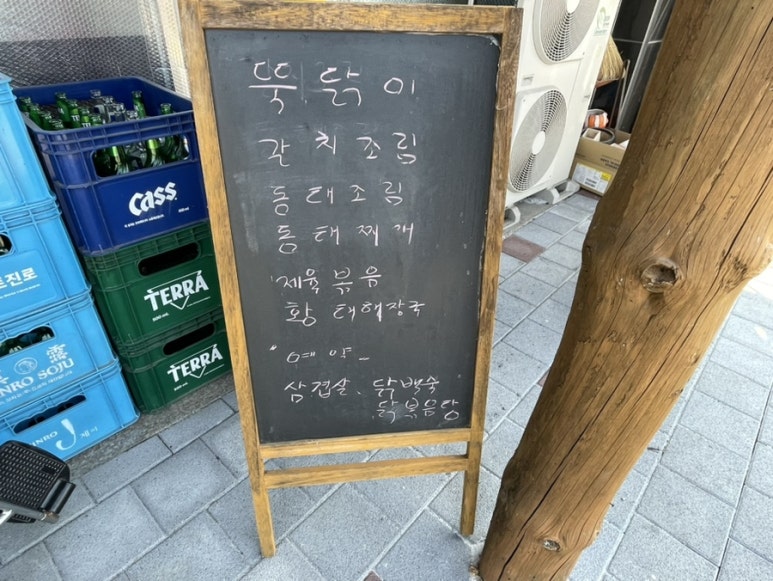 뚝닭이
갈치조림
동태조림
동태찌개
제육볶음
황태해장국
예약
삼겹살. 닭백숙
닭볶음탕
CASS
TERRA
TERRA
트진로
NRO SOJU
NRO J